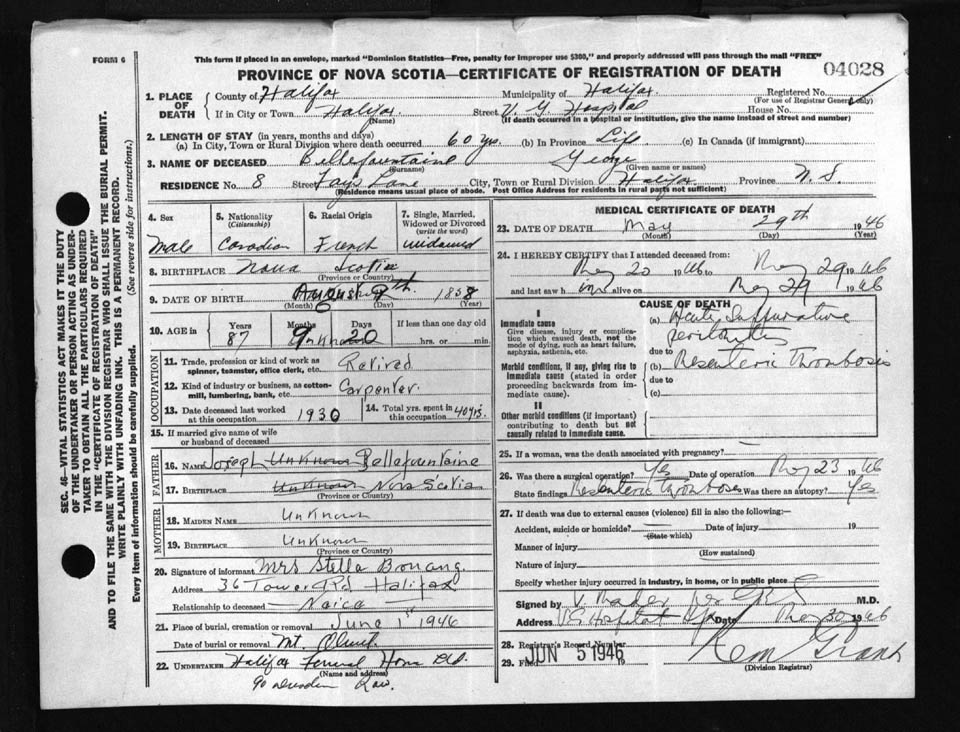 FORM 6
This form if placed in an envelope, marked "Dominion Statistics—Free, penalty for improper use $300," and properly addressed will pass through the mail "FREE"
PROVINCE OF NOVA SCOTIA—CERTIFICATE OF REGISTRATION OF DEATH
04028
1. PLACE OF DEATH
County of Halifax Municipality of Halifax Registered No.
(For use of Registrar General only)
If in City or Town Halifax Street V. G. Hospital House No.
(Name) (If death occurred in a hospital or institution, give the name instead of street and number)
2. LENGTH OF STAY (in years, months and days)
(a) In City, Town or Rural Division where death occurred 60 yrs. (b) In Province Life (c) In Canada (if immigrant)
3. NAME OF DECEASED Bellefountaine George
(Surname) (Given name or names)
RESIDENCE No. 8 Street Lane City, Town or Rural Division Halifax Province N. S.
(Residence means usual place of abode. Post Office Address for residents in rural parts not sufficient)
SEC. 46—VITAL STATISTICS ACT MAKES IT THE DUTY
OF THE UNDERTAKER OR PERSON ACTING AS UNDER-
TAKER TO OBTAIN ALL THE PARTICULARS REQUIRED
IN THE "CERTIFICATE OF REGISTRATION OF DEATH"
AND TO FILE THE SAME WITH THE DIVISION REGISTRAR WHO SHALL ISSUE THE BURIAL PERMIT.
WRITE PLAINLY WITH UNFADING INK. THIS IS A PERMANENT RECORD.
Every item of information should be carefully supplied. (See reverse side for instructions.)
4. Sex
Male
5. Nationality
(Citizenship)
Canadian
6. Racial Origin
French
7. Single, Married,
Widowed or Divorced
(write the word)
widowed
8. BIRTHPLACE Nova Scotia
(Province or Country)
9. DATE OF BIRTH August 9th. 1858
(Month) (Year)
10. AGE in Years Months Days If less than one day old
87 9 Unknown 20 hrs. or min.
OCCUPATION
11. Trade, profession or kind of work as
spinner, teamster, office clerk, etc. Retired
12. Kind of industry or business, as cotton-
mill, lumbering, bank, etc. Carpenter.
13. Date deceased last worked
at this occupation 1930
14. Total yrs. spent in
this occupation 40 yrs.
15. If married give name of wife
or husband of deceased
FATHER
16. Name Joseph Unknown Bellefountaine
17. Birthplace Unknown Nova Scotia
(Province or Country)
MOTHER
18. Maiden Name Unknown
19. Birthplace Unknown
(Province or Country)
20. Signature of informant Mrs Stella Bonang.
Address 36 Tower Rd Halifax
Relationship to deceased Neice
21. Place of burial, cremation or removal June 1st 1946
Date of burial or removal Mt. Olivet.
22. UNDERTAKER Halifax Funeral Home Ltd.
(Name and address)
90 Dresden Row.
MEDICAL CERTIFICATE OF DEATH
23. DATE OF DEATH May 29th 1946
(Month) (Day) (Year)
24. I HEREBY CERTIFY that I attended deceased from:
May 20 1946 to May 29 1946
and last saw him alive on May 29 1946
CAUSE OF DEATH
I
Immediate cause
Give disease, injury or complica-
tion which caused death, not the
mode of dying, such as heart failure,
asphyxia, asthenia, etc.
(a) Acute Suppurative
peritonitis
due to
Morbid conditions, if any, giving rise to
immediate cause (stated in order
proceeding backwards from im-
mediate cause).
(b) Mesenteric thrombosis
due to
(c)
II
Other morbid conditions (if important)
contributing to death but not
causally related to immediate cause.
25. If a woman, was the death associated with pregnancy?
26. Was there a surgical operation? Yes Date of operation May 23 1946
State findings Mesenteric thrombosis Was there an autopsy? Yes
27. If death was due to external causes (violence) fill in also the following:—
Accident, suicide or homicide? Date of injury 19
(State which)
Manner of injury
(How sustained)
Nature of injury
Specify whether injury occurred in industry, in home, or in public place
Signed by V. Mader per M.D.
Address V.G. Hospital Hfx Date May 30 1946
28. Registrar's Record Number
29. Filed JUN 5 1946 19
(Division Registrar)